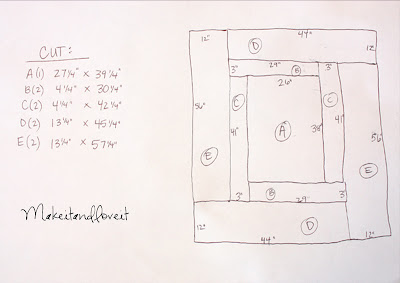 CUT:
A (1) 27 1/4" x 39 1/4"
B (2) 4 1/4" x 30 1/4"
C (2) 4 1/4" x 42 1/4"
D (2) 13 1/4" x 45 1/4"
E (2) 13 1/4" x 57 1/4"
Makeitandloveit
12" 44"
D 12"
3" 29" B 3"
26"
56" C C
41" A 38" 41" 56"
E E
3" B 3"
29"
12" D
44" 12"